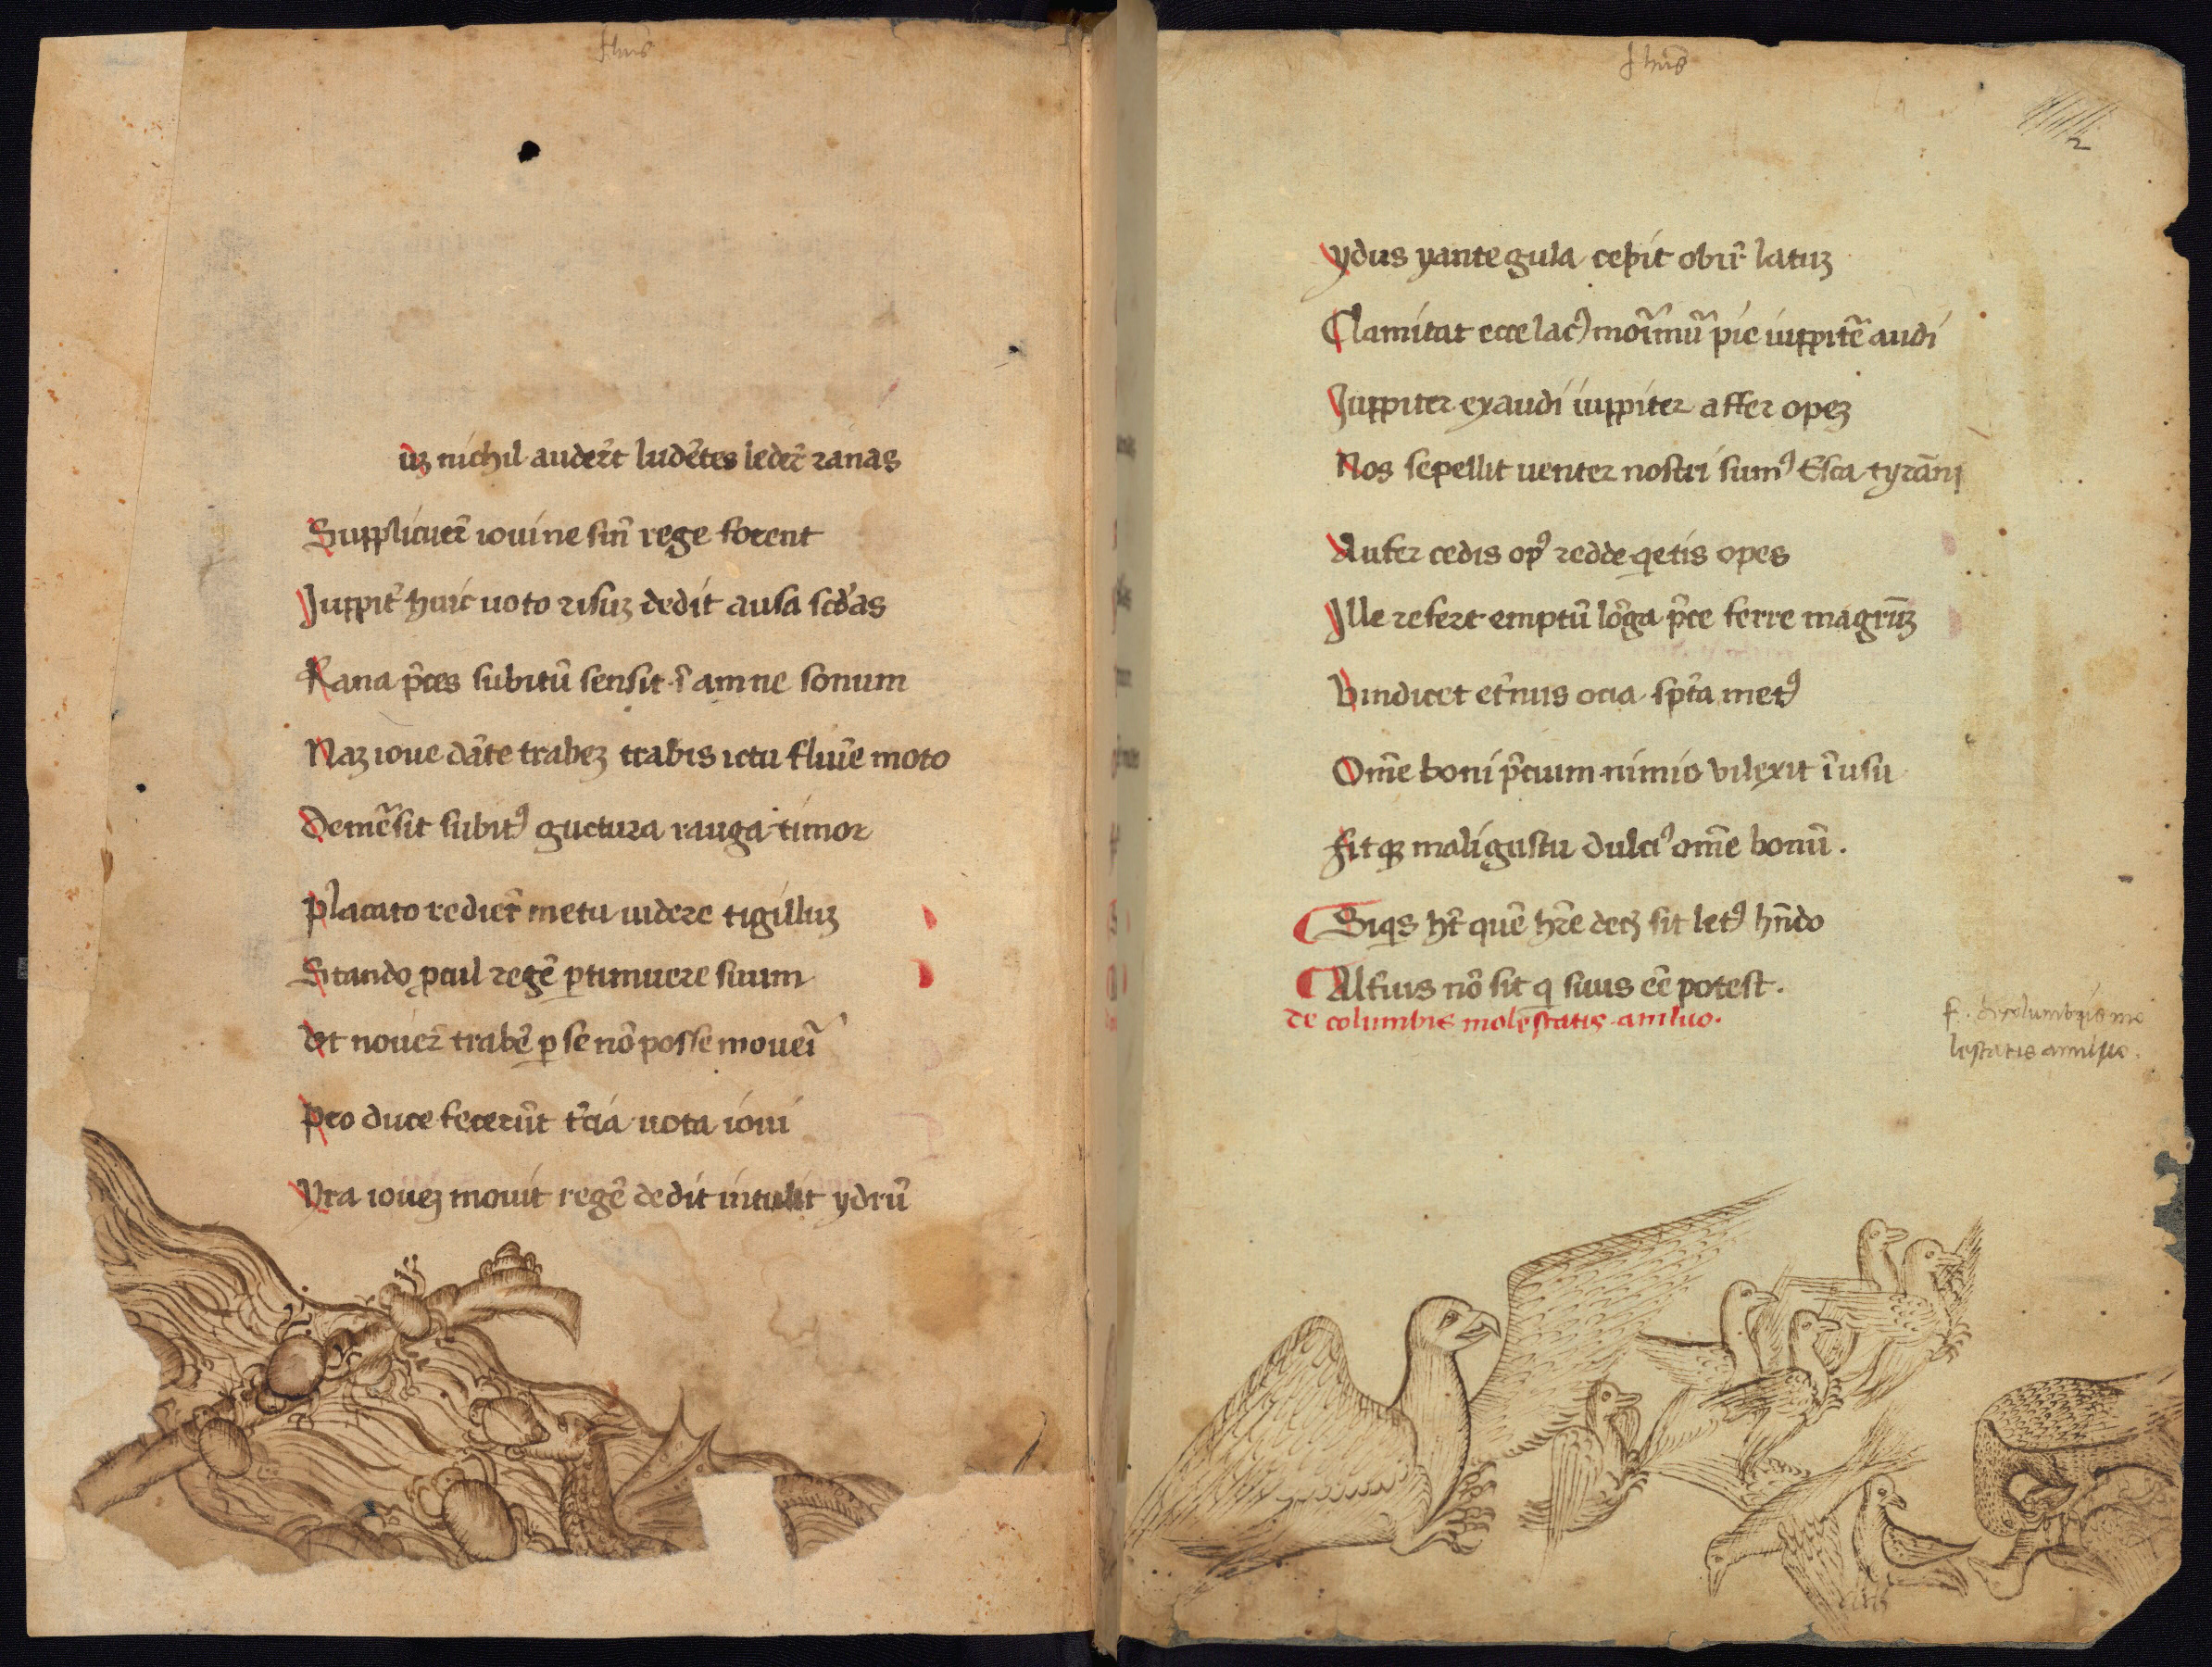 Jhus
uꝫ nichil auder̄t ludētes leder̄ ranas
Supplicuer̄ ioui ne sin̄ rege forent
Juppit̄ huic uoto risuꝫ dedit ausa scd̄as
Rana p̄ces subitū sensit ī amne sonum
Naꝫ ioue dāte trabeꝫ trabis ictu fluīe moto
Demēsit subitꝰ guctura rauga timor
Placato redier̄ metu uidere tigilluꝫ
Stando ꝓcul regē ꝑtimuere suum
Et nouer̄ trabē ꝑ se nō posse mouerī
Pro duce fecerūt t̄cia uota ioui
Yra ioueꝫ mouit regē dedit intulit ydrū
Jhus
2
ydus yante gula cepit obir̄ latuꝫ
Clamitat ecce lacꝰ morīmur̄ pie iuppitē audi
Juppiter exaudi iuppiter affer opeꝫ
Nos sepellit uenter nostri sumꝰ Esca tyrāni
Aufer cedis opꝰ redde qetis opes
Ille refert emptū lōga p̄ce ferre magrīꝫ
Vindicet et̄nus ocia spt̄a metꝰ
Om̄e boni p̄cium nimio vilexit ī usu
fitqꝫ mali gustu dulciꝰ om̄e bonū.
Siqs ht̄ quē hr̄e decꝫ sit letꝰ hn̄do
Alfius nō sit q suus eē potest.
de columbis molestatis a miluo.
f. de columbis mo
lestatis a miluo.